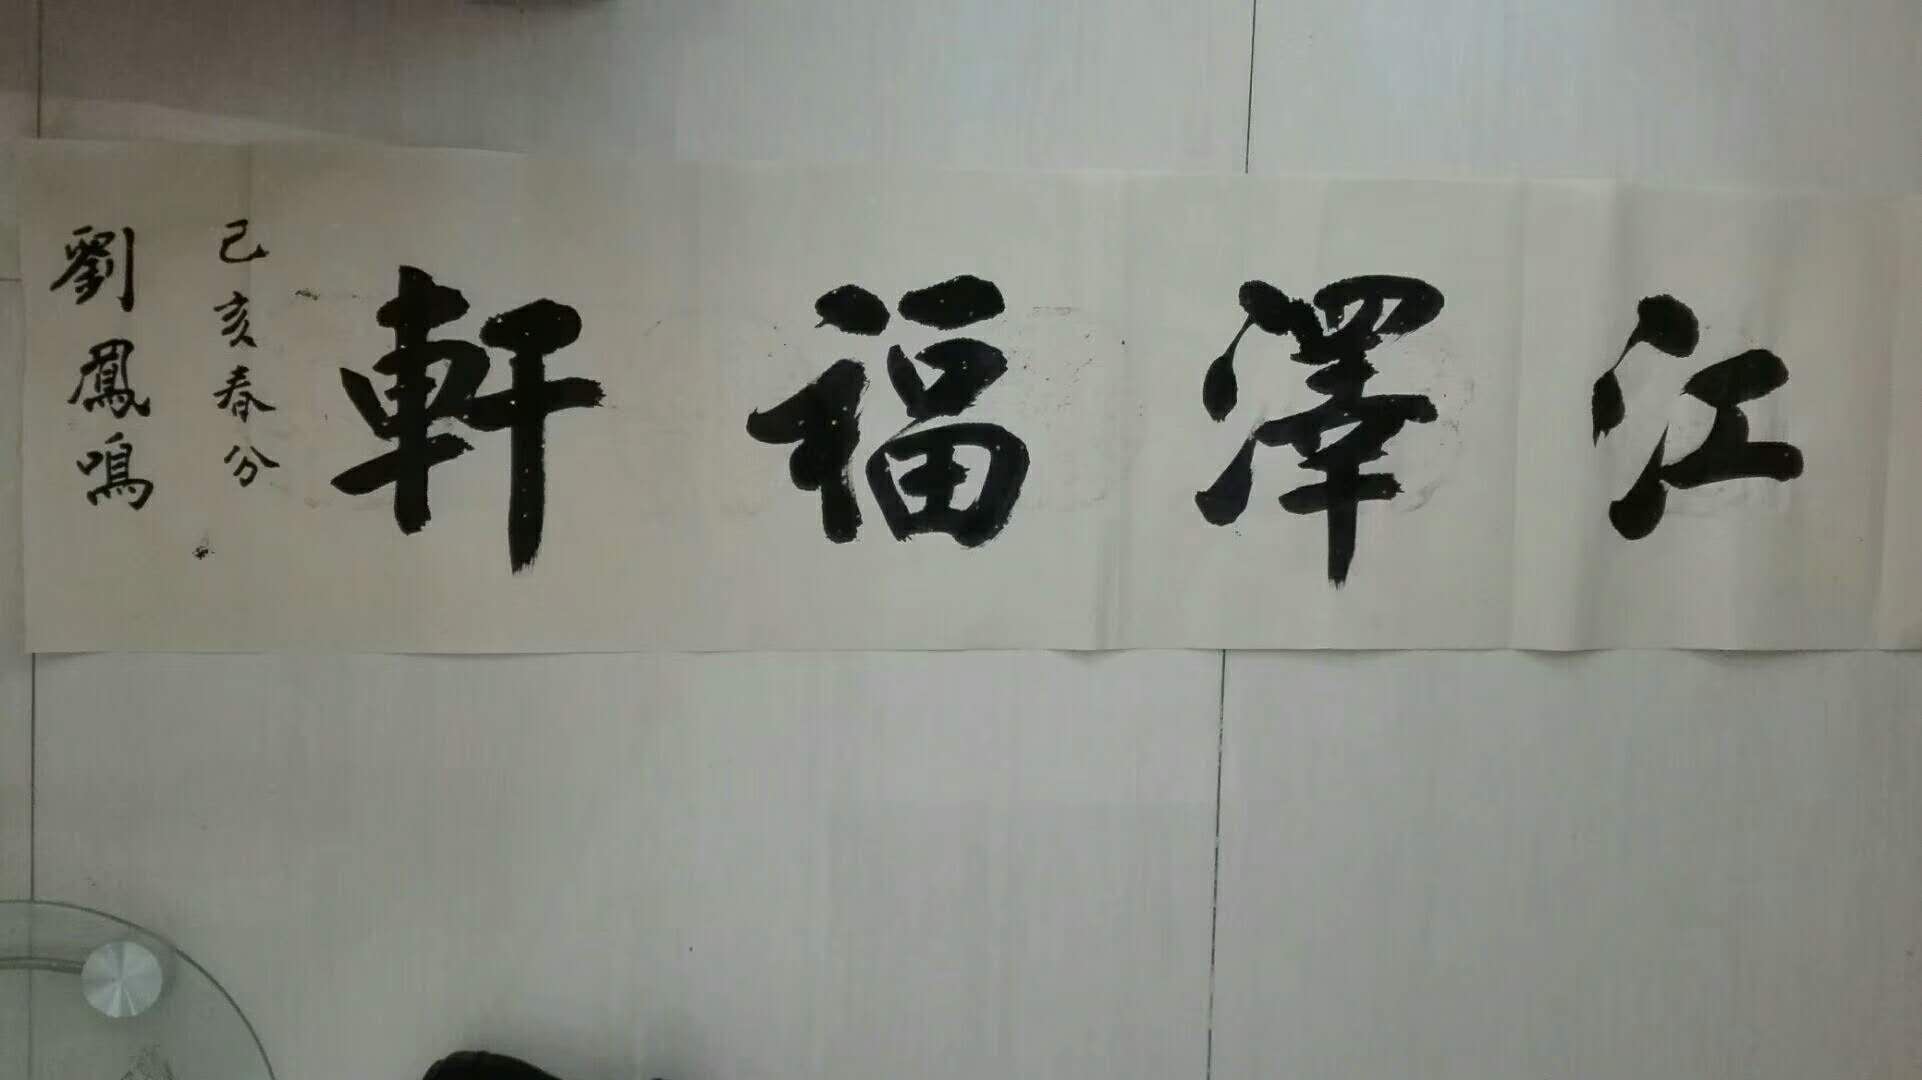 江澤福軒
己亥春分
劉鳳鳴